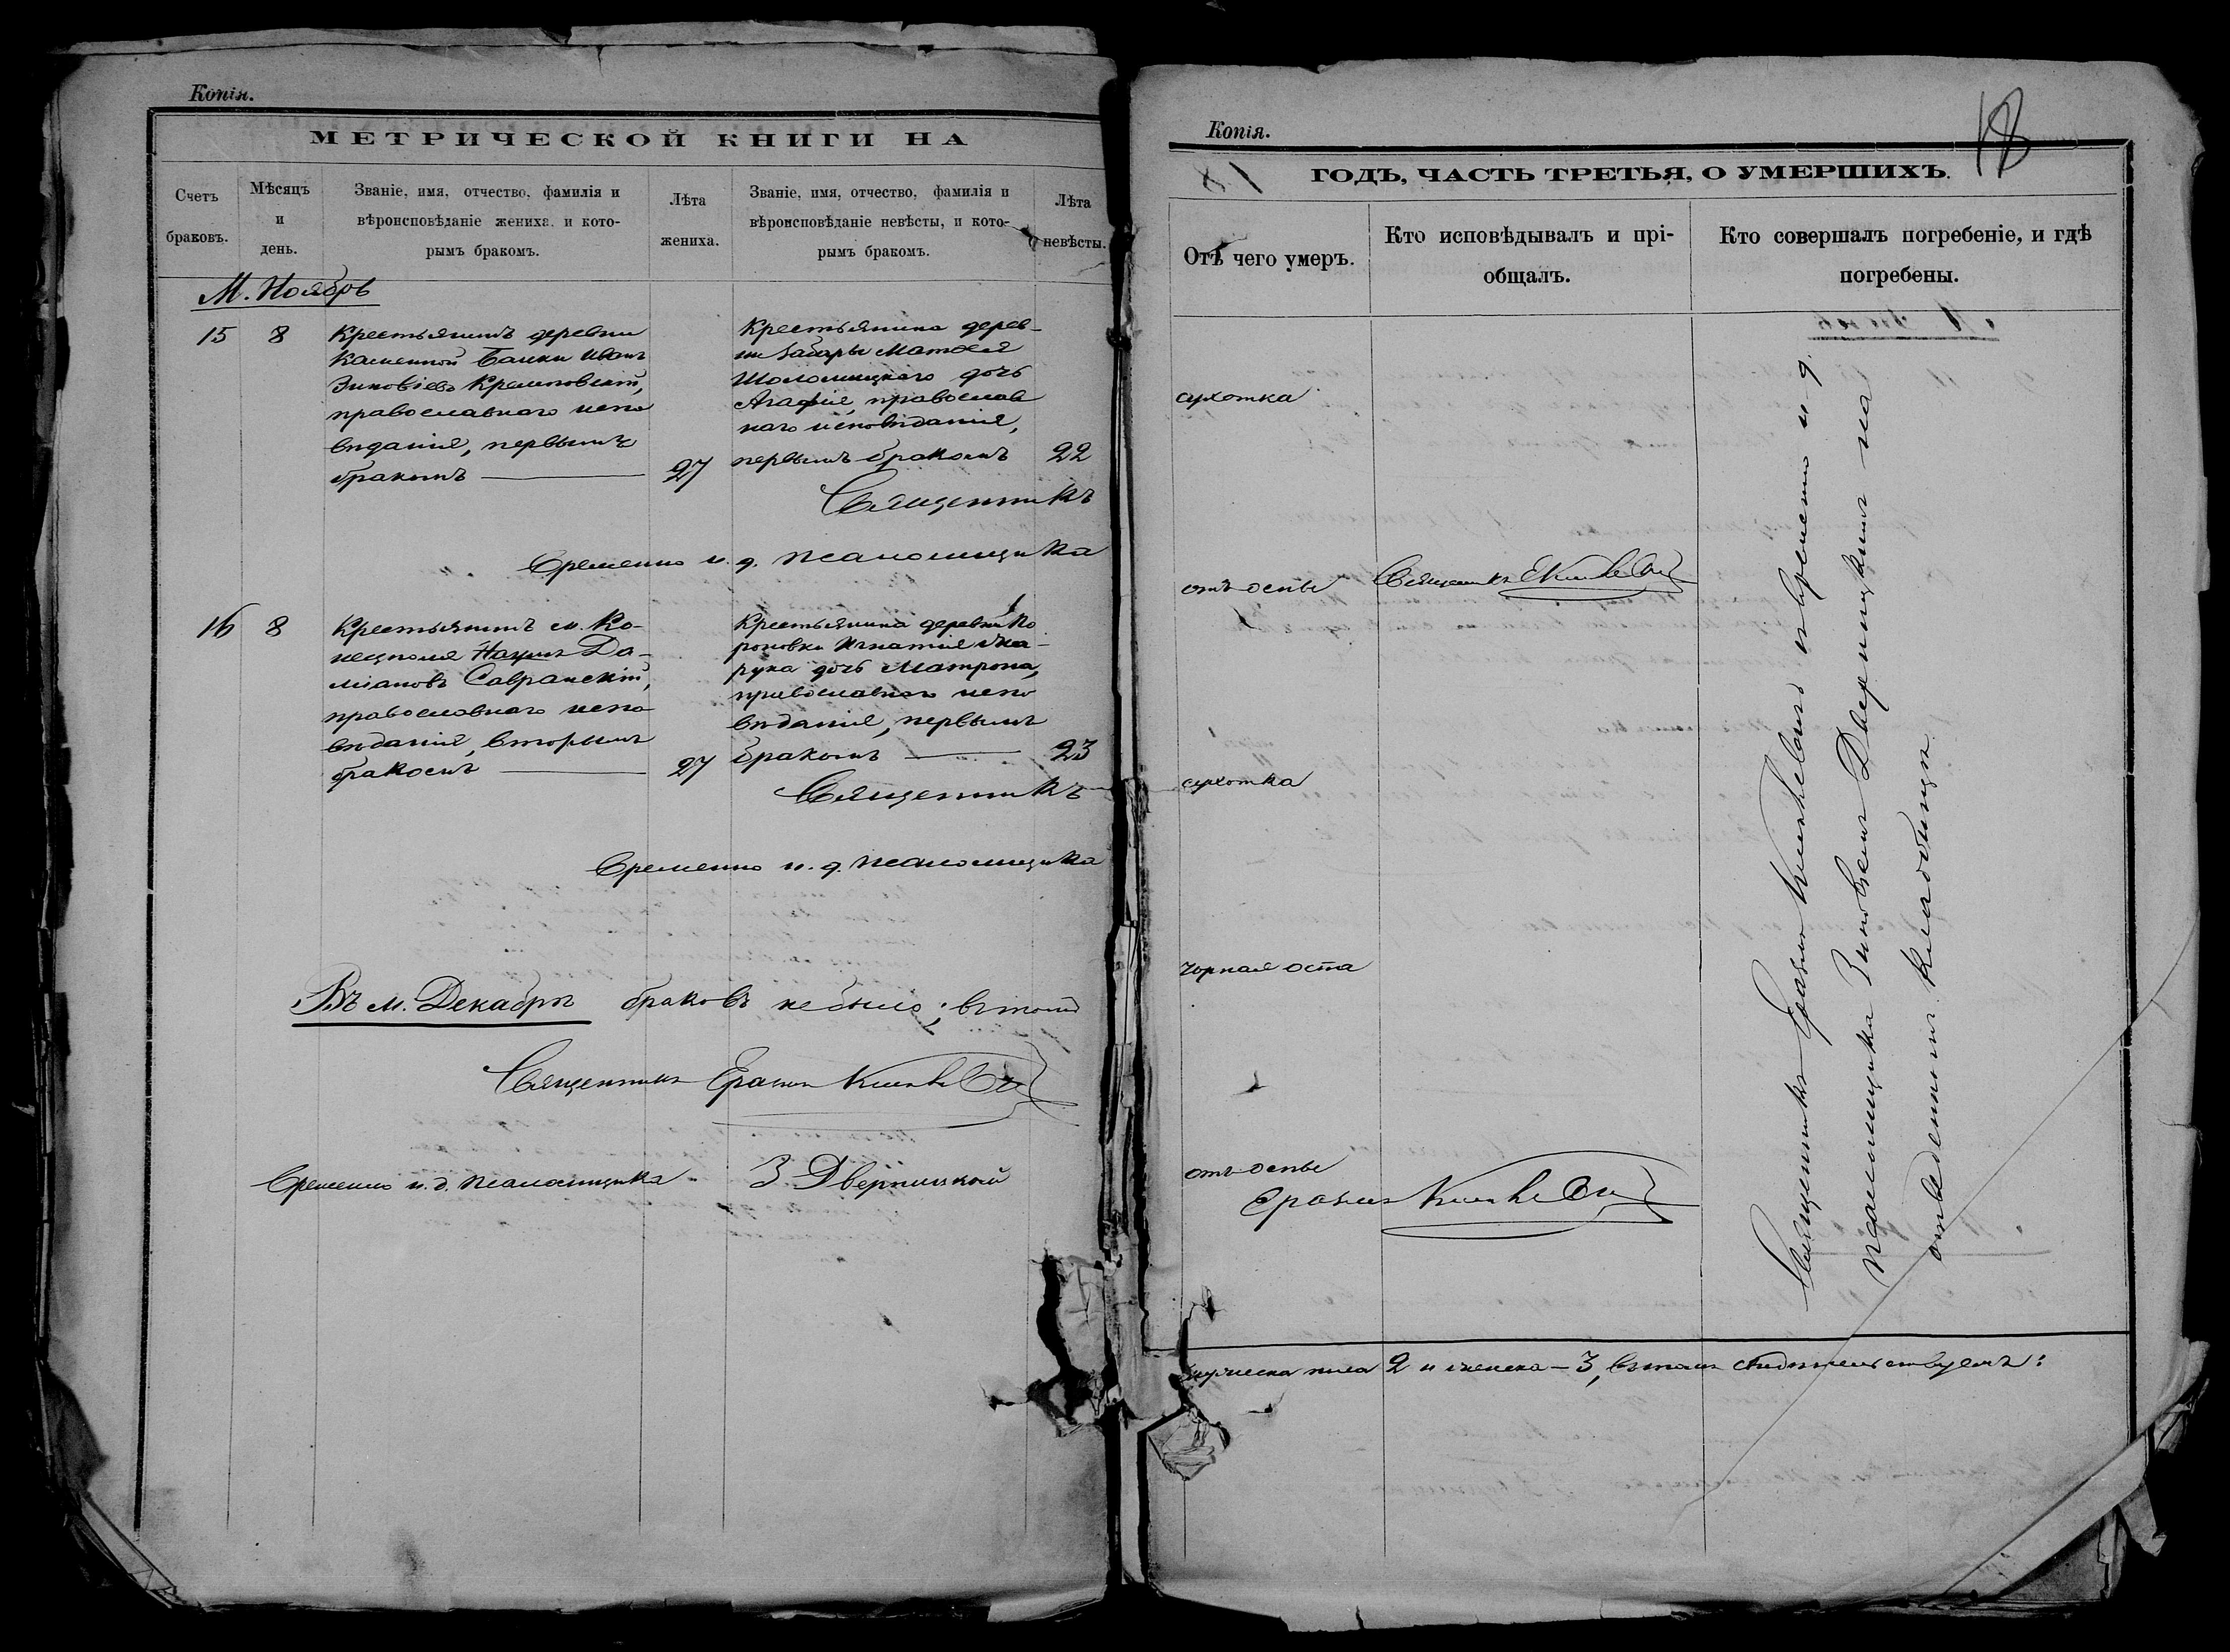 Копія.
МЕТРИЧЕСКОЙ КНИГИ НА
Счетъ
браковъ.
Мѣсяцъ
и
день.
Званіе, имя, отчество, фамилія и
вѣроисповѣданіе жениха, и кото-
рымъ бракомъ.
Лѣта
жениха.
Званіе, имя, отчество, фамилія и
вѣроисповѣданіе невѣсты, и кото-
рымъ бракомъ.
Лѣта
невѣсты.
М. Ноябрь
15
8
Крестьянинъ деревни
Каменной Балки Иванъ
Зиновіевъ Кремповскій,
православнаго испо
вѣданія, первымъ
бракомъ
27
Крестьянина дерев-
ни Забары Матѳея
Шоломицкаго дочь
Агафія, православ
наго исповѣданія,
первымъ бракомъ
22
Священникъ
Временно и. д. псаломщика
16
8
Крестьянинъ м. Ко-
нецполя Наумъ Да-
міановъ Савранскій,
православнаго испо
вѣданія, вторымъ
бракомъ
27
Крестьянина деревни
Игнатія
дочь Матрона,
православнаго испо
вѣданія, первымъ
бракомъ
23
Священникъ
Временно и. д. псаломщика
Въ м. Декабрѣ браковъ не было; въ томъ
Священникъ
Временно и. д. псаломщика З Дверницкій
Копія.
18
18
ГОДЪ, ЧАСТЬ ТРЕТЬЯ, О УМЕРШИХЪ.
Отъ чего умеръ.
Кто исповѣдывалъ и прі-
общалъ.
Кто совершалъ погребеніе, и гдѣ
погребены.
сухотка
отъ оспы
Священникъ
сухотка
чорная оспа
отъ оспы
Священникъ и временно и. д.
псаломщика Зиновіемъ Дверницкимъ на
отведенномъ кладбищѣ
мужеска пола 2 и женска – 3, въ томъ свидѣтельствуемъ: